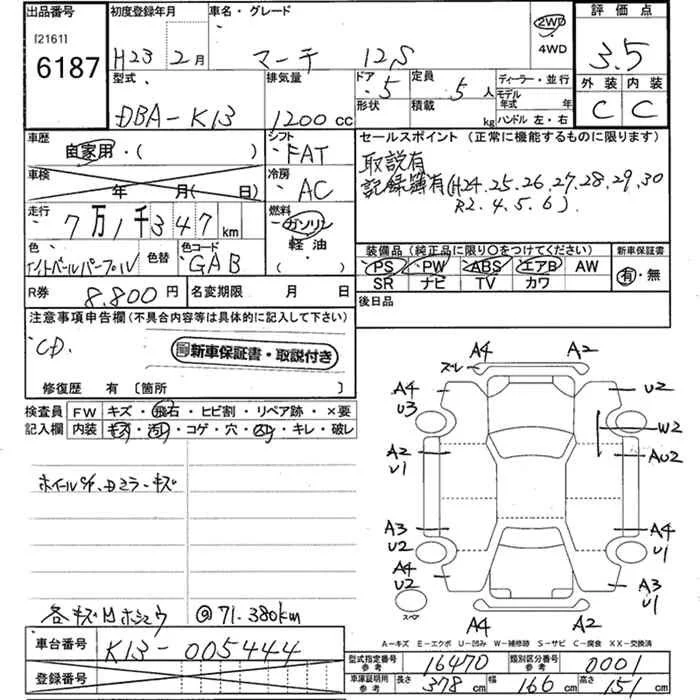 出品番号 初度登録年月 車名・グレード 評価点
[2161]
6187
H23 2月 マーチ 12S 2WD 4WD 3.5
型式 排気量 ドア 5 定員 5人 ディーラー・並行 外装 内装
形状 積載 kg モデル年式 年 ハンドル 左・右
DBA-K13 1200cc C C
車歴 シフト セールスポイント (正常に機能するものに限ります)
自家用・( ) FAT
取説有
車検 冷房 記録簿有(H24.25.26.27.28.29.30
年 月( 日) AC R2.4.5.6)
走行 燃料
7万1千347km ガソリン
軽油
( )
色 色替 色コード 装備品(純正品に限り○をつけてください) 新車保証書
ナイトベールパープルV GAB PS PW ABS エアB AW 有・無
SR ナビ TV カワ
R券 8.800円 名変期限 月 日 後日品
注意事項申告欄(不具合内容等は具体的に記入して下さい)
CD
新車保証書・取説付き
修復歴 有 〔箇所
検査員記入欄 FW キズ・飛石・ヒビ割・リペア跡・×要
内装 キズ・汚れ・コゲ・穴・スレ・キレ・破レ
ホイールC/P.Dミラーキズ
各キズ有ホシュウ @71.380km
スレ A4 A2
A4 U3 U2
W2
A2 U1 AU2
A3 U2 A4 U1
A4 U2 A3 U1
スペア
A4 A2
A-キズ E-エクボ U-凹み W-補修跡 S-サビ C-腐食 XX-交換済
車台番号 K13-005444
型式指定番号 参考 16470 類別区分番号 参考 0001
登録番号
車庫証明用 参考 長さ 378cm 幅 166cm 高さ 151cm